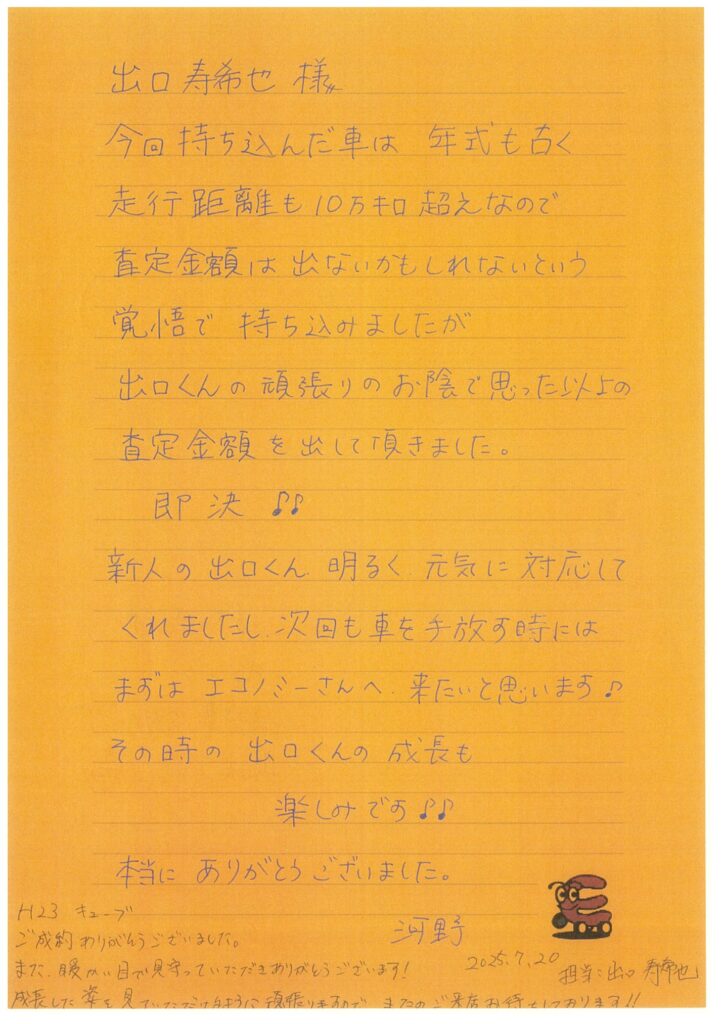 出口 寿希也 様
今回 持ち込んだ車は 年式も古く
走行距離も 10万キロ 超えなので
査定金額は 出ないかもしれないという
覚悟で 持ち込みましたが
出口くんの 頑張りの お陰で 思った以上の
査定金額を 出して 頂きました。
即決 ♪♪
新人の 出口くん、明るく、元気に 対応して
くれましたし、次回も 車を 手放す時には
まずは エコノミーさんへ、来たいと思います♪
その時の 出口くんの 成長も
楽しみです♪♪
本当に ありがとうございました。
河野
H23 キューブ
ご成約ありがとうございました。
また、暖かい目で見守っていただきありがとうございます!
2025.7.20
担当:出口 寿希也
成長した姿を見ていただけるように頑張りますので、またのご来店お待ちしております!!